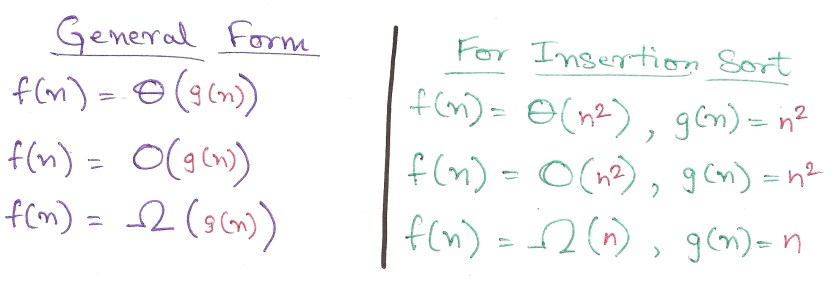 General Form
f(n) = Θ(g(n))
f(n) = O(g(n))
f(n) = Ω(g(n))
For Insertion Sort
f(n) = Θ(n²), g(n) = n²
f(n) = O(n²), g(n) = n²
f(n) = Ω(n), g(n) = n